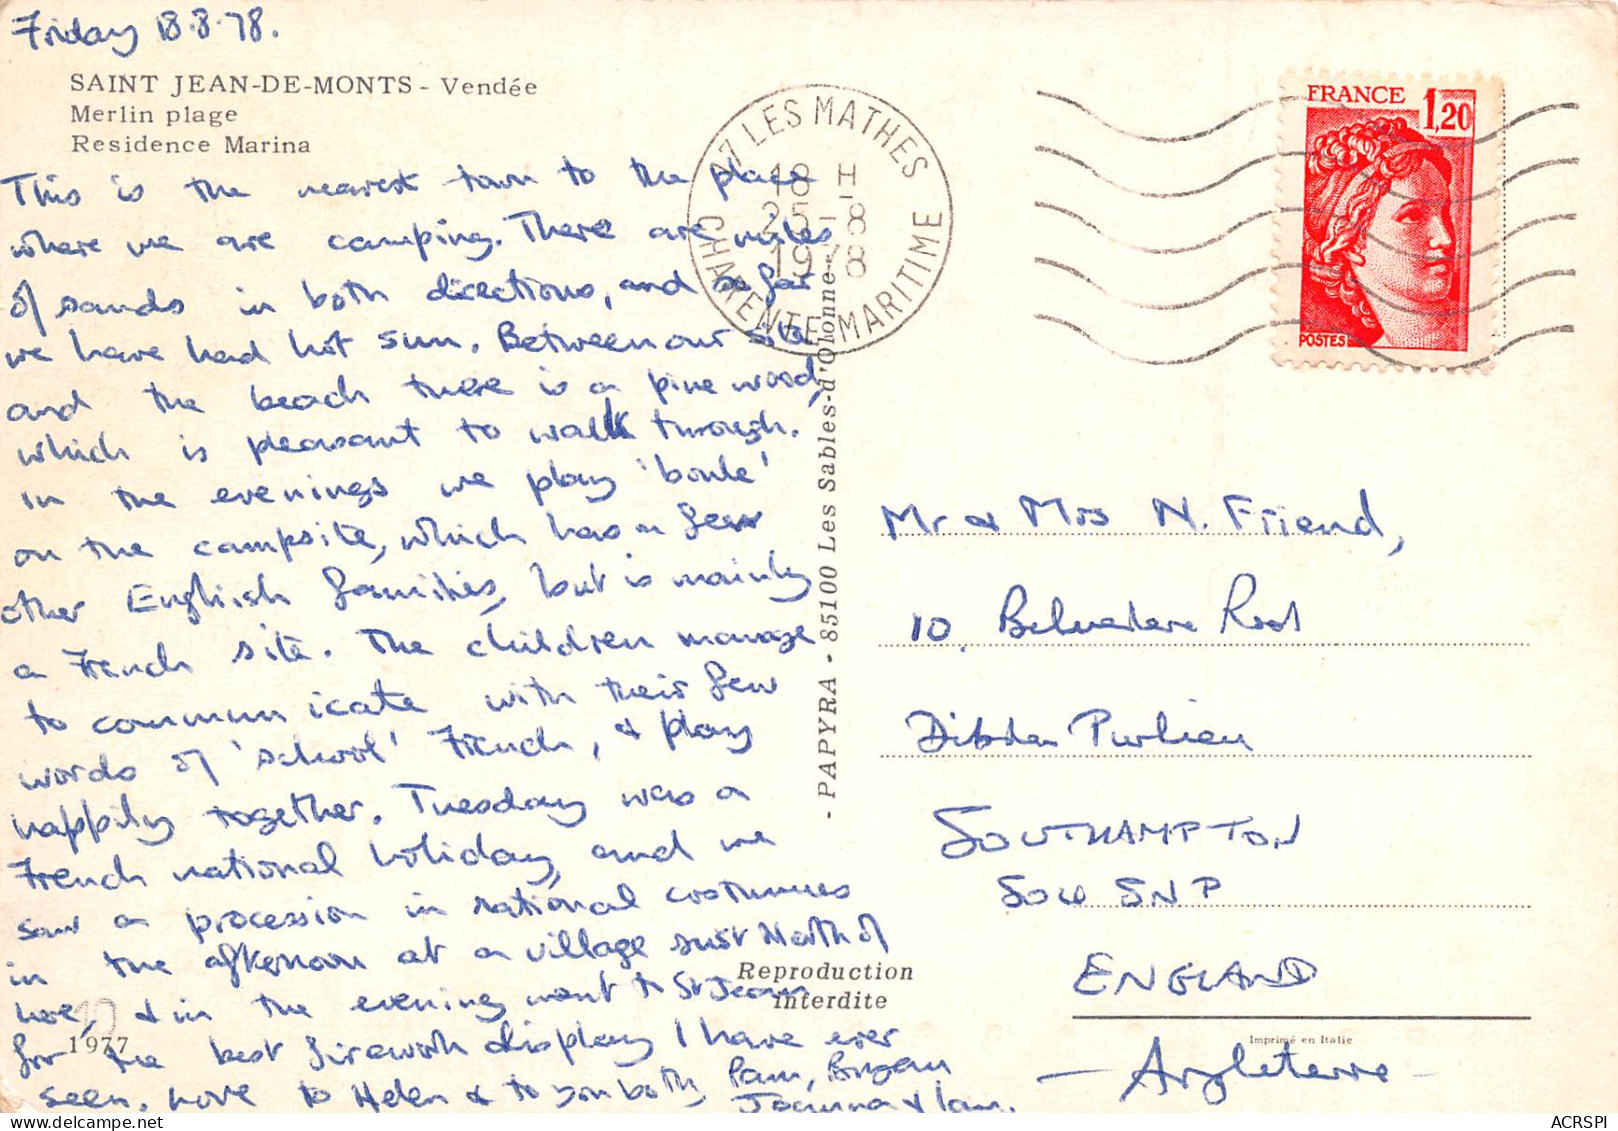 Friday 18.8.78.
SAINT JEAN-DE-MONTS - Vendée
Merlin plage
Residence Marina
This is the nearest town to the place
where we are camping. There are miles
of sands in both directions, and so far
we have had hot sun. Between our site
and the beach there is a pine wood,
which is pleasant to walk through.
In the evenings we play 'boule'
on the campsite, which has a few
other English families, but is mainly
a French site. The children manage
to communicate with their few
words of 'school' French, & play
happily together. Tuesday was a
French national holiday, and we
saw a procession in national costumes
in the afternoon at a village just North of
here, & in the evening went to St Jean
for the best firework display I have ever
seen. Love to Helen & to you both, Pam, Bryan
Joanna & Ian.
1977
- PAPYRA - 85100 Les Sables-d'Olonne -
Reproduction
interdite
17 LES MATHES
18 H
25-8
1978
CHARENTE-MARITIME
FRANCE 1,20
POSTES
Mr & Mrs N. Friend,
10, Belvedere Road
Dibden Purlieu
SOUTHAMPTON
SO4 5NP
ENGLAND
Imprimé en Italie
- Angleterre -
ACRSPI